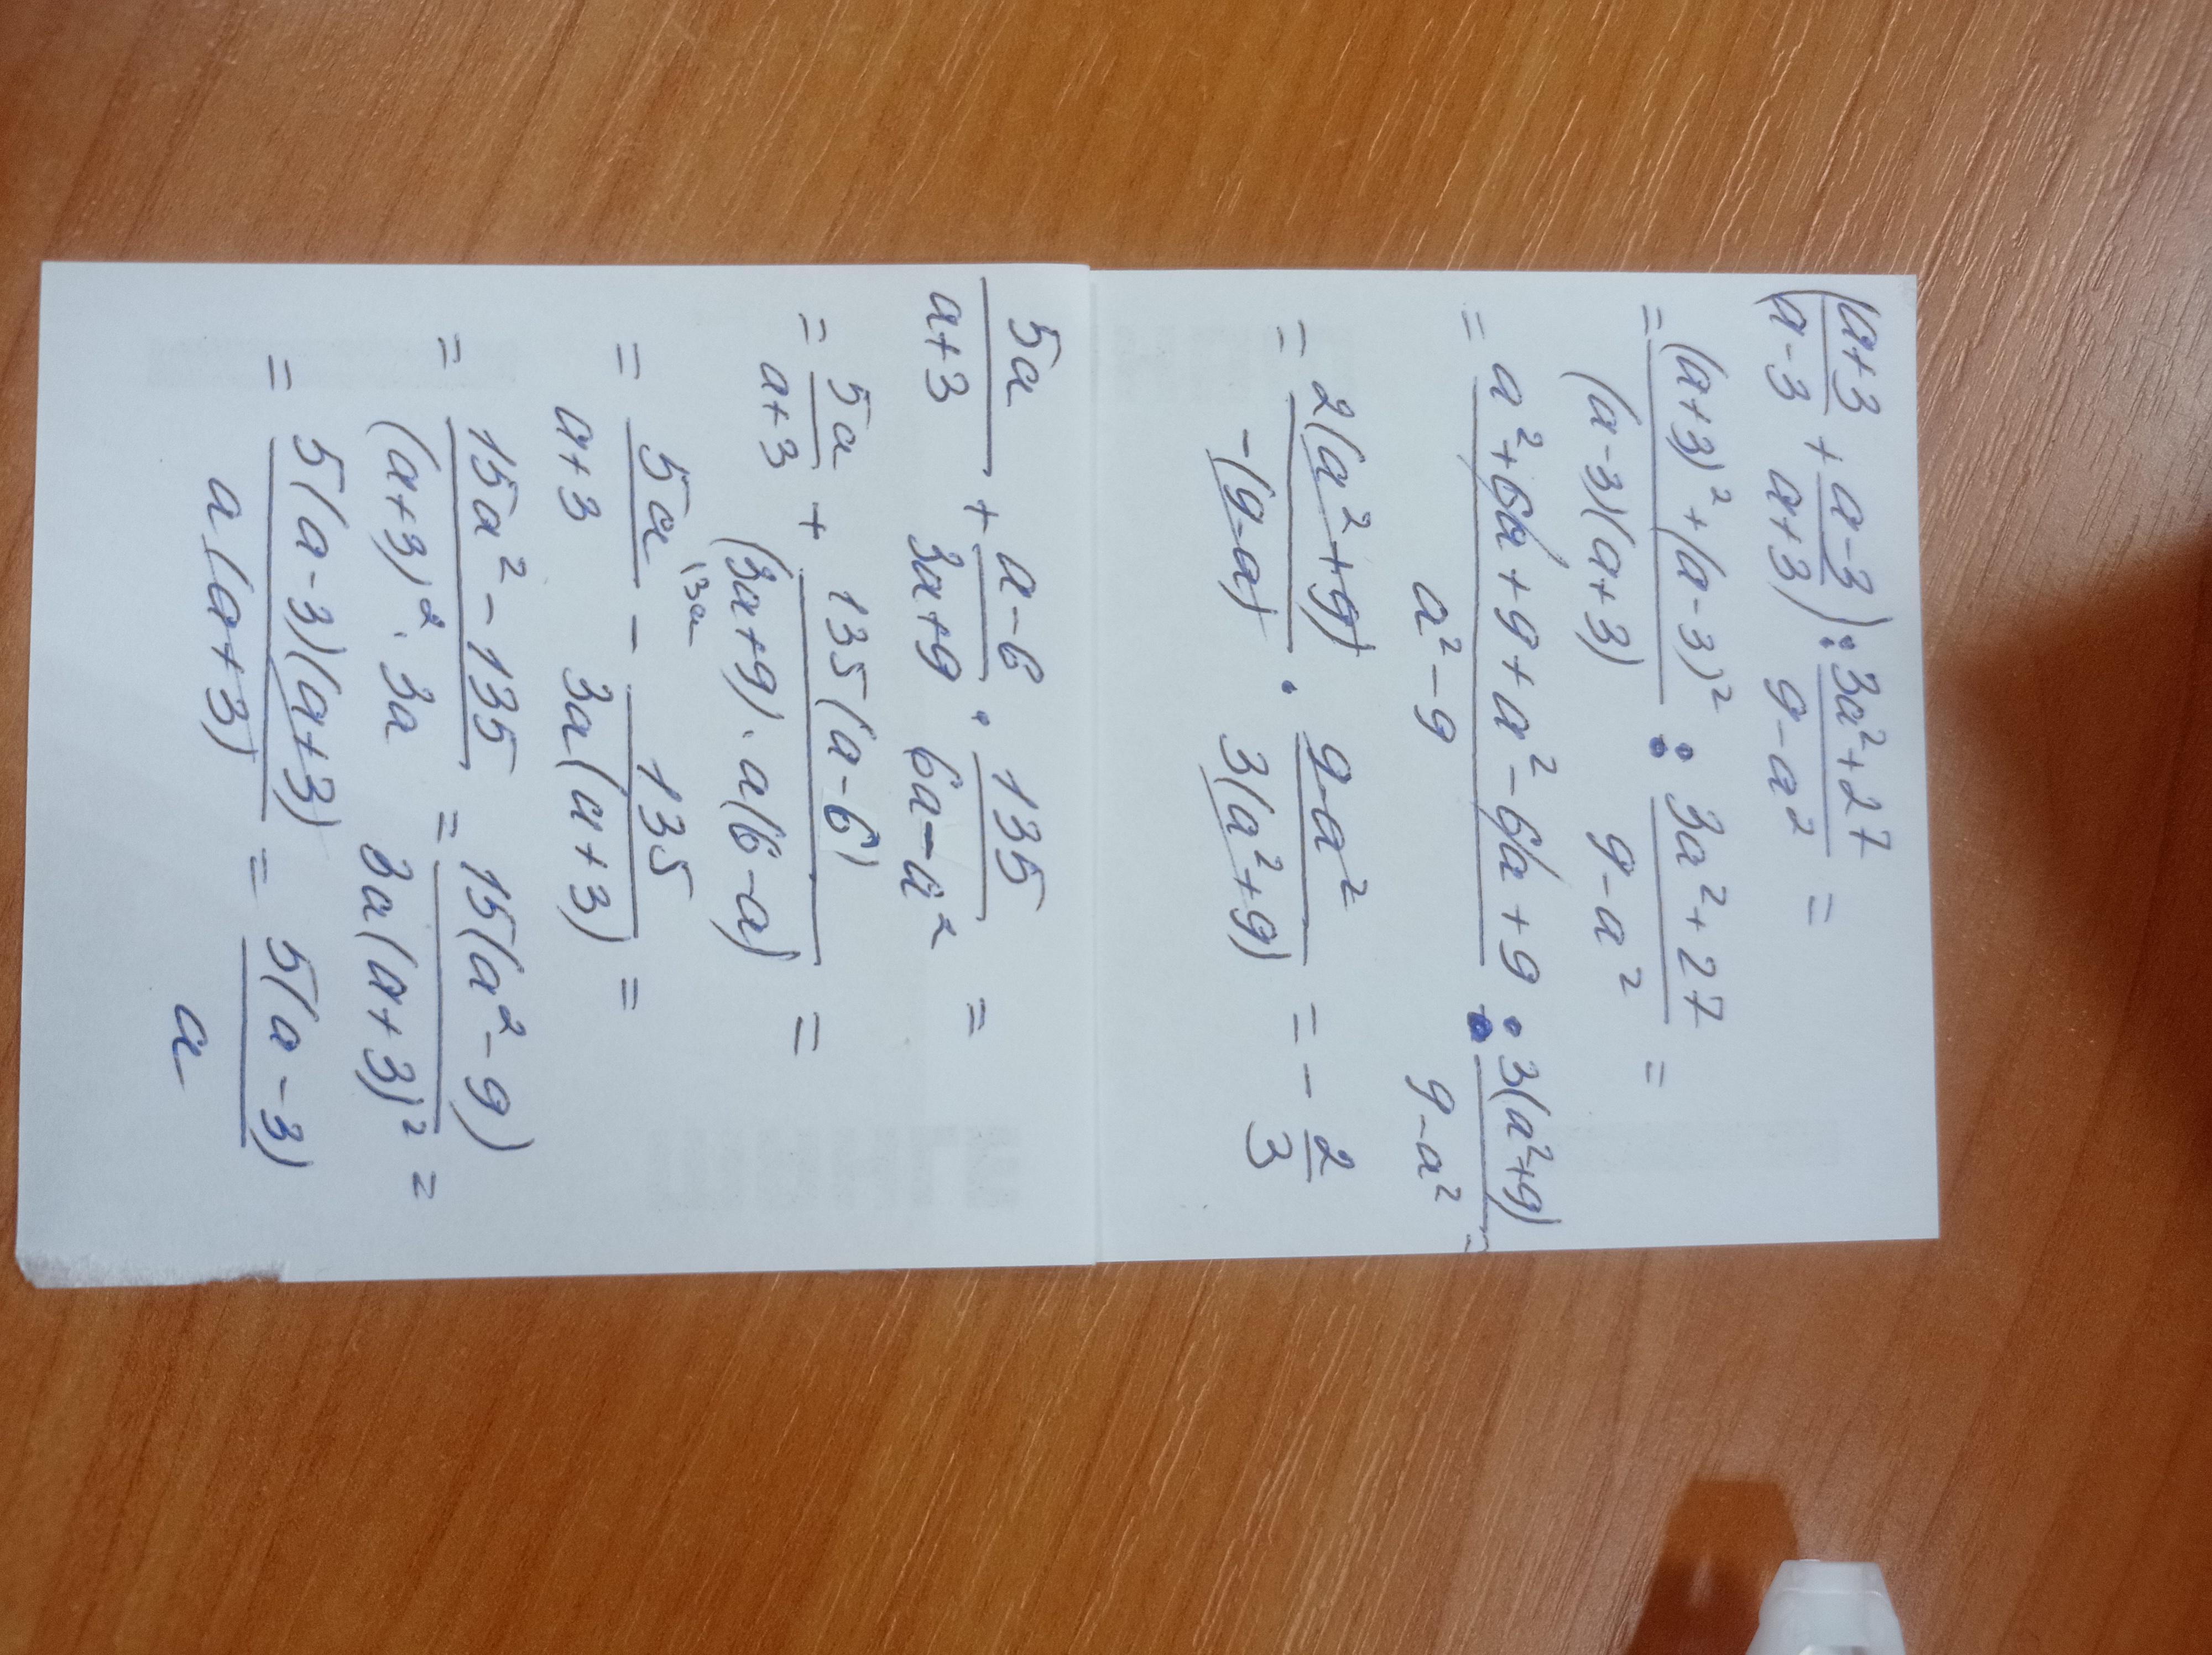 (a+3/a-3 + a-3/a+3) : 3a²+27/9-a² =
= (a+3)²+(a-3)²/(a-3)(a+3) : 3a²+27/9-a² =
= a²+6a+9+a²-6a+9/a²-9 : 3(a²+9)/9-a² =
= 2(a²+9)/-(9-a) · 9-a²/3(a²+9) = - 2/3
5a/a+3 + a-6/3a+9 · 135/6a-a² =
= 5a/a+3 + 135(a-6)/(3a+9)·a(6-a) =
= 5a\3a/a+3 - 135/3a(a+3) =
= 15a²-135/(a+3)²·3a = 15(a²-9)/3a(a+3)² =
= 5(a-3)(a+3)/a(a+3) = 5(a-3)/a